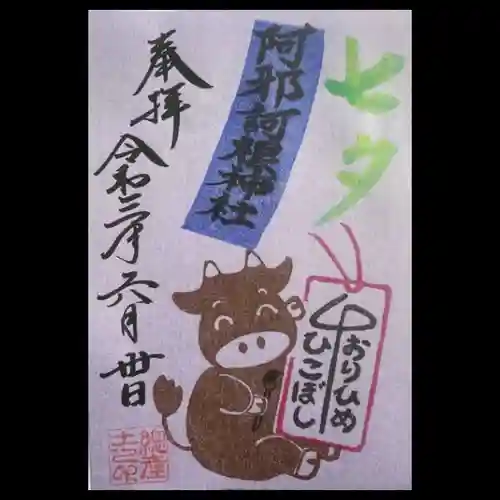 七夕
阿邪訶根神社
奉拝
令和三年六月廿日
おりひめ
ひこぼし